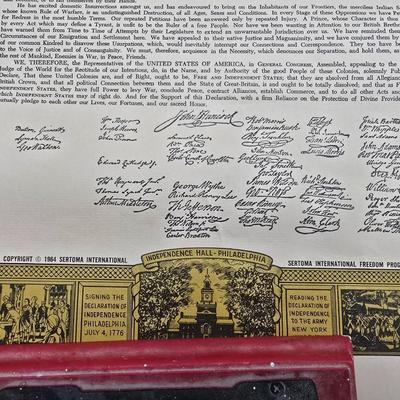 He has excited domestic Insurrections amongst us, and has endeavoured to bring on the Inhabitants of our Frontiers, the merciless Indian S
whose known Rule of Warfare, is an undistinguished Destruction, of all Ages, Sexes and Conditions.
in the most humble Terms: Our repeated Petitions have been answered only by repeated Injury. A Prince, whose Character is thus
by every Act which may define a Tyrant, is unfit to be the Ruler of a free People. Nor have we been wanting in Attention to our British Brethr
have warned them from Time to Time of Attempts by their Legislature to extend an unwarrantable Jurisdiction over us. We have reminded
Circumstances of our Emigration and Settlement here. We have appealed to their native Justice and Magnanimity, and we have conjured them
of our common Kindred to disavow these Usurpations, which, would inevitably interrupt our Connections and Correspondence. They too have be
to the Voice of Justice and of Consanguinity. We must, therefore, acquiesce in the Necessity, which denounces our Separation, and hold them, as
the rest of Mankind, Enemies in War, in Peace, Friends.
WE, THEREFORE, the Representatives of the UNITED STATES OF AMERICA, in GENERAL CONGRESS, Assembled, appealing to the
Judge of the World for the Rectitude of our Intentions, do, in the Name, and by Authority of the good People of these Colonies, solemnly Pub
Declare, That these United Colonies are, and of Right, ought to be, FREE AND INDEPENDENT STATES; that they are absolved from all Allegiance
British Crown, and that all political Connection between them and the State of Great-Britain, is and ought to be totally dissolved; and that as
INDEPENDENT STATES, they have full Power to levy War, conclude Peace, contract Alliances, establish Commerce, and to do all other Acts and
which INDEPENDENT STATES may of right do. And for the Support of this Declaration, with a firm Reliance on the Protection of Divine Provide
mutually pledge to each other our Lives, our Fortunes, and our sacred HONOR.
John Hancock
Button Gwinnett
Lyman Hall
Geo Walton
Wm Hooper
Joseph Hewes
John Penn
Edward Rutledge
Thos Heyward Junr
Thomas Lynch Junr
Arthur Middleton
Samuel Chase
Wm Paca
Thos Stone
George Wythe
Richard Henry Lee
Th Jefferson
Benj Harrison
Carter Braxton
Robt Morris
Benjamin Rush
Geo Taylor
James Wilson
Geo Ross
Caesar Rodney
Richd Stockton
Abra Clark
John Adams
COPYRIGHT © 1964 SERTOMA INTERNATIONAL
INDEPENDENCE HALL - PHILADELPHIA
SERTOMA INTERNATIONAL FREEDOM PROG
SIGNING THE
DECLARATION OF
INDEPENDENCE
PHILADELPHIA
JULY 4, 1776
READING THE
DECLARATION OF
INDEPENDENCE
TO THE ARMY
NEW YORK